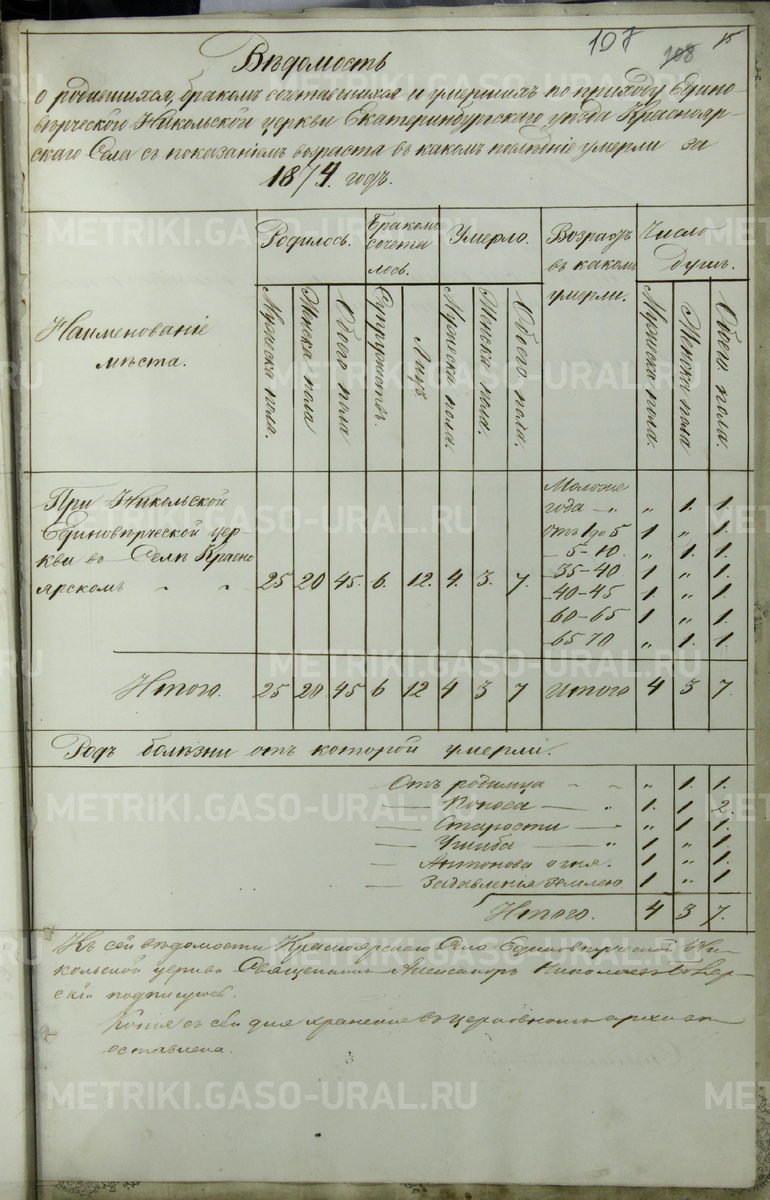 107 108 15
Вѣдомость
о родившихся, бракомъ сочетавшихся и умершихъ по приходу Едино-
вѣрческой Никольской церкви Екатеринбургскаго уѣзда Краснояр-
скаго Села съ показаніемъ возраста въ какомъ умерли за
1874. годъ.
Наименованіе мѣста.
Родилось.
Бракомъ сочеталось.
Умерло.
Возрастъ въ какомъ умерли.
Число душъ.
Мужеска пола.
Женска пола
Обоего пола
Супружествъ.
Лицъ
Мужеска пола.
Женска пола.
Обоего пола.
Мужеска пола.
Женска пола
Обоего пола.
При Никольской
Единовѣрческой цер-
кви въ Селѣ Красно
ярскомъ „ „ 25 20 45. 6. 12. 4. 3. 7.
Моложе
года — „ „ 1. 1.
отъ 1 до 5 1 „ 1.
— 5-10. „ 1. 1.
— 35-40 1 „ 1.
— 40-45 1 „ 1.
— 60-65 1 „ 1.
— 65-70 „ 1. 1.
Итого. 25 20 45 6 12 4 3 7 Итого 4 3 7.
Родъ болѣзни отъ которой умерли.
Отъ родимца — „ „ 1. 1.
— Поноса — „ 1. 1. 2.
— Старости — „ „ 1 1.
— Ушиба — „ 1 „ 1.
— Антонова огня. 1 „ 1.
— Задавленія землею. 1 „ 1.
Итого. 4 3 7.
Къ сей вѣдомости Красноярскаго Села Единовѣрческой Ни-
кольской церкви Священникъ Александръ
скій подписуюсь.
Копія съ сей для храненія въ церковномъ архивѣ
оставлена.
METRIKI.GASO-URAL.RU